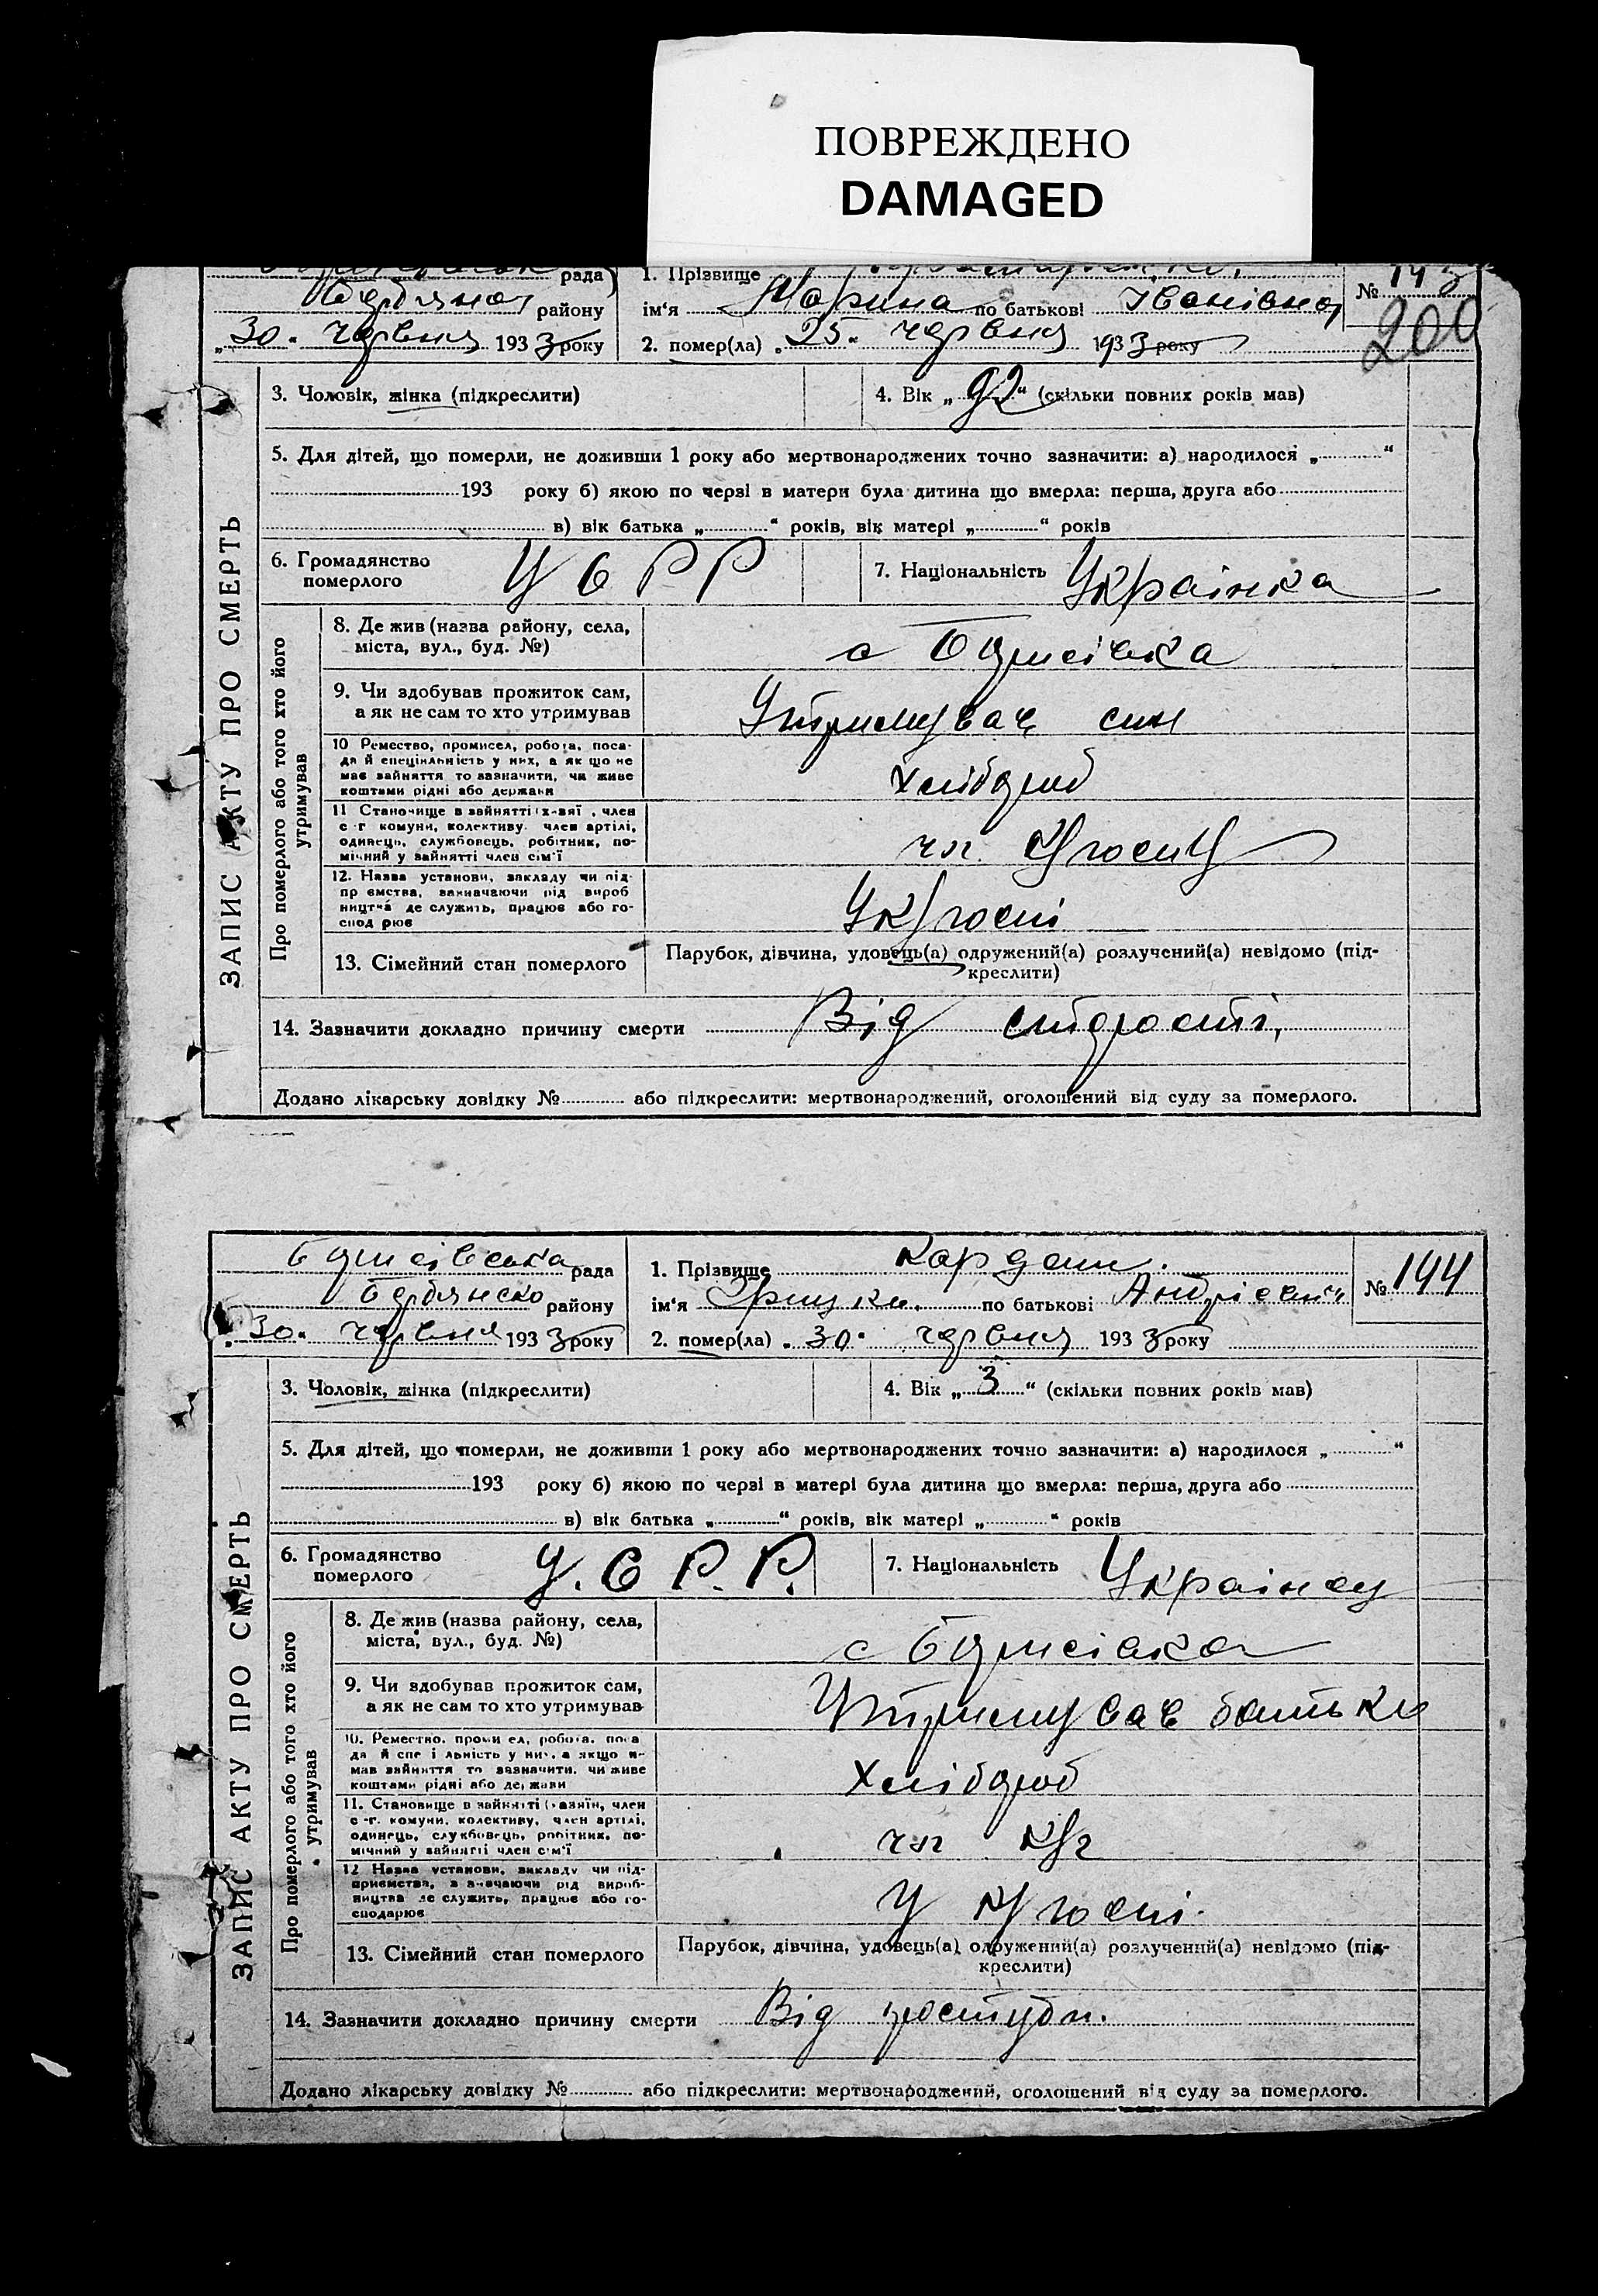 ПОВРЕЖДЕНО
DAMAGED
рада 1. Прізвище № 143
району ім'я Марина по батькові Іванівна 200
„30" червня 1933 року 2. помер(ла) „25" червня 1933 року
3. Чоловік, жінка (підкреслити) 4. Вік „92" (скільки повних років мав)
5. Для дітей, що померли, не доживши 1 року або мертвонароджених точно зазначити: а) народилося „ "
193 року б) якою по черзі в матери була дитина що вмерла: перша, друга або
в) вік батька „ " років, вік матері „ " років
6. Громадянство померлого УСРР 7. Національність Українка
ЗАПИС АКТУ ПРО СМЕРТЬ
Про померлого або того хто його утримував
8. Де жив (назва району, села,
міста, вул., буд. №)
с
9. Чи здобував прожиток сам,
а як не сам то хто утримував
Утримувач син
10 Ремество, промисел, робота, поса-
да й спеціяльність у них, а як що не
має зайняття то зазначити, чи живе
коштами рідні або держави
Хлібороб
11 Становище в зайнятті (х-заї , член
с-г комуни, колективу. член артілі,
одинець, службовець, робітник, по-
мічний у зайнятті член сім'ї
чл.
12. Назва установи, закладу чи під-
пр ємства, зазначаючи рід вироб
ництва де служить, працює або го-
спод рює
13. Сімейний стан померлого Парубок, дівчина, удовець(а) одружений(а) розлучений(а) невідомо (під-
креслити)
14. Зазначити докладно причину смерти Від старости,
Додано лікарську довідку № або підкреслити: мертвонароджений, оголошений від суду за померлого.
рада 1. Прізвище Кардаш. № 144
району ім'я по батькові Андрієвич
„30" червня 1933 року 2. помер(ла) „30" червня 1933 року
3. Чоловік, жінка (підкреслити) 4. Вік „3" (скільки повних років мав)
5. Для дітей, що померли, не доживши 1 року або мертвонароджених точно зазначити: а) народилося „ "
193 року б) якою по черзі в матері була дитина що вмерла: перша, друга або
в) вік батька „ " років, вік матері „ " років
6. Громадянство померлого У.С.Р.Р. 7. Національність Українец
ЗАПИС АКТУ ПРО СМЕРТЬ
Про померлого або того хто його утримував
8. Де жив (назва району, села,
міста, вул., буд. №)
с
9. Чи здобував прожиток сам,
а як не сам то хто утримував
Утримувач батько
10. Ремество. промисел, робота. поса
да й спе і льність у них. а якщо н-
мав зайняття то зазначити. чи живе
коштами рідні або держави
Хлібороб
11. Становище в зайнятті (хазяїн, член
с-г. комуни. колективу, член артілі,
одинець, службовець, робітник, по-
мічний у зайнятті член сім'ї
чл
12 Назва установи, закладу чи під-
приємства, зазначаючи рід вироб-
ництва де служить, працює або го-
сподарює
У
13. Сімейний стан померлого Парубок, дівчина, удовець(а) одружений(а) розлучений(а) невідомо (під-
креслити)
14. Зазначити докладно причину смерти Від простуди.
Додано лікарську довідку № або підкреслити: мертвонароджений, оголошений від суду за померлого.